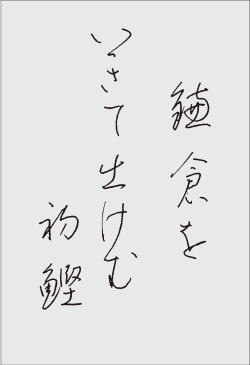 鎌倉を
いきて出けむ
初鰹